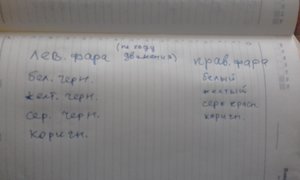 (по ходу движения)
лев. фара
прав. фара
бел. черн.
белый
желт. черн.
желтый
сер. черн.
серо красн.
коричн.
коричн.